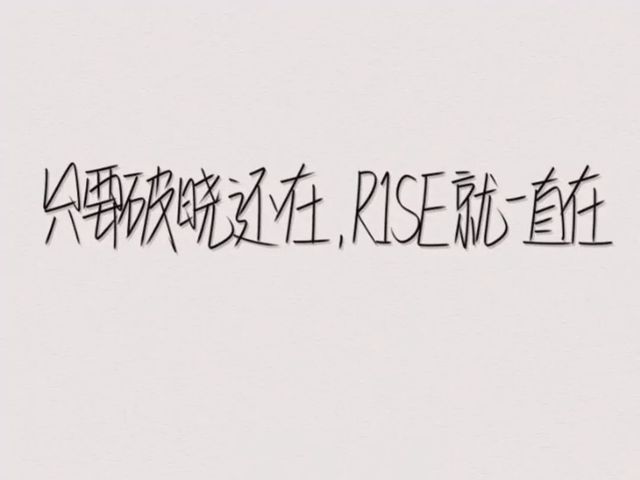 只要破晓还在,R1SE就一直在